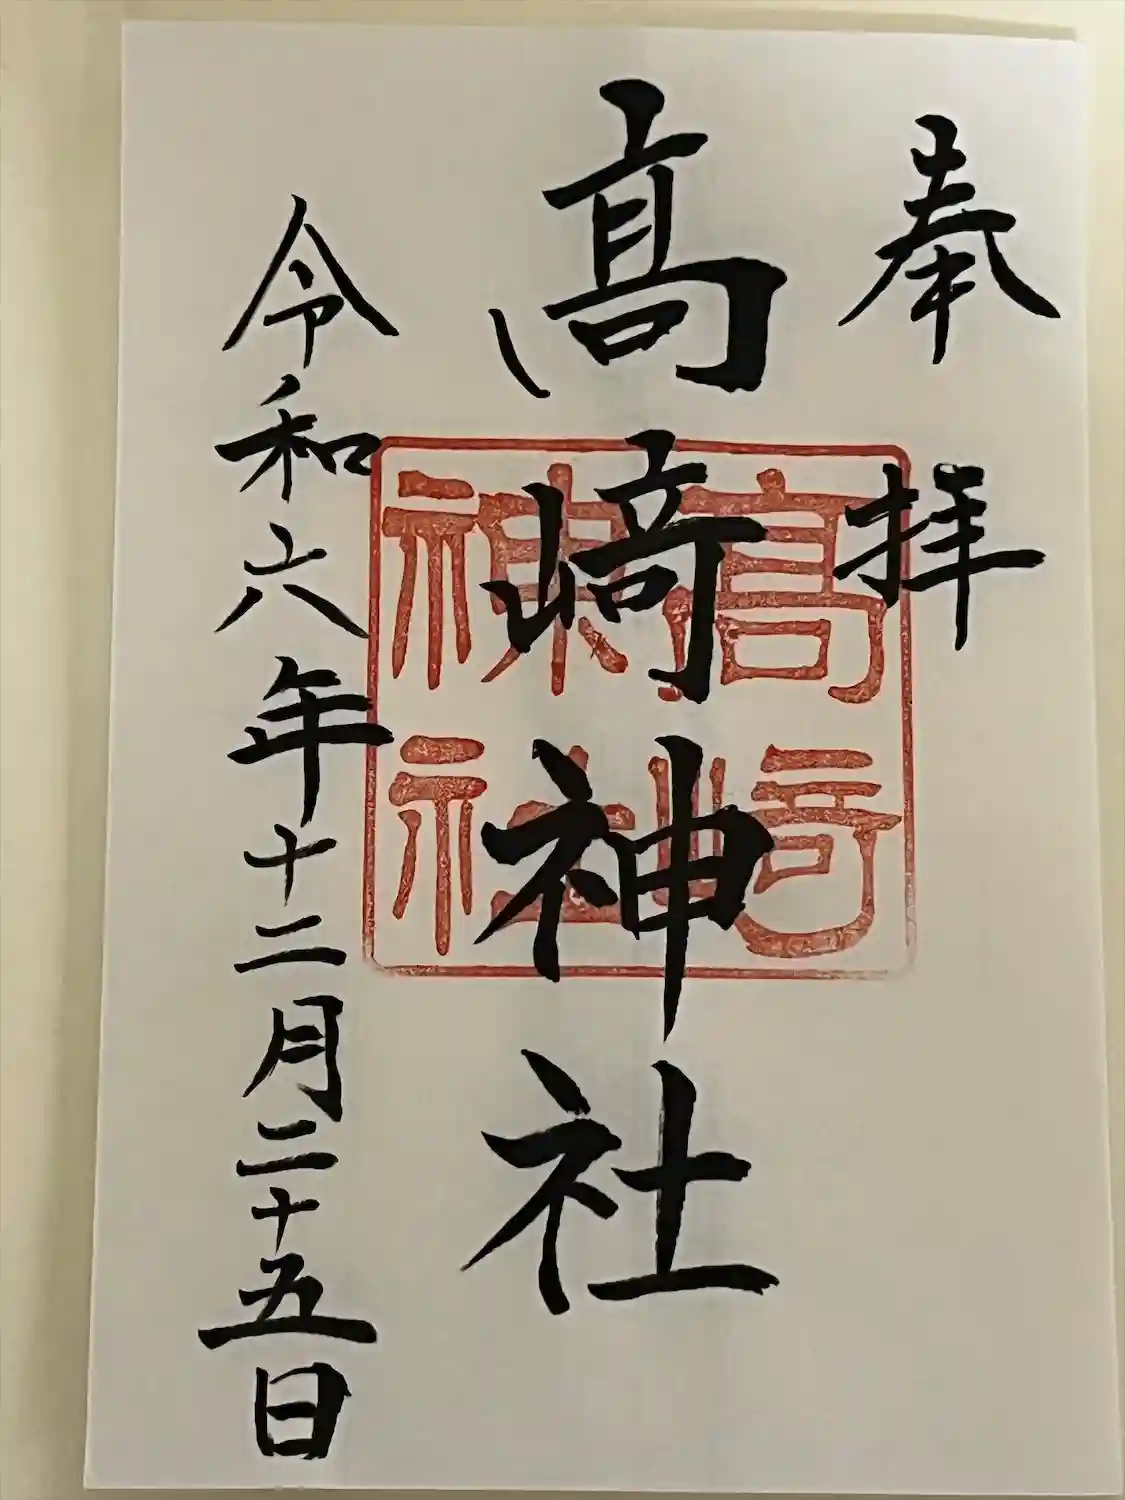 奉拝
髙﨑神社
高崎神社
令和六年十二月二十五日